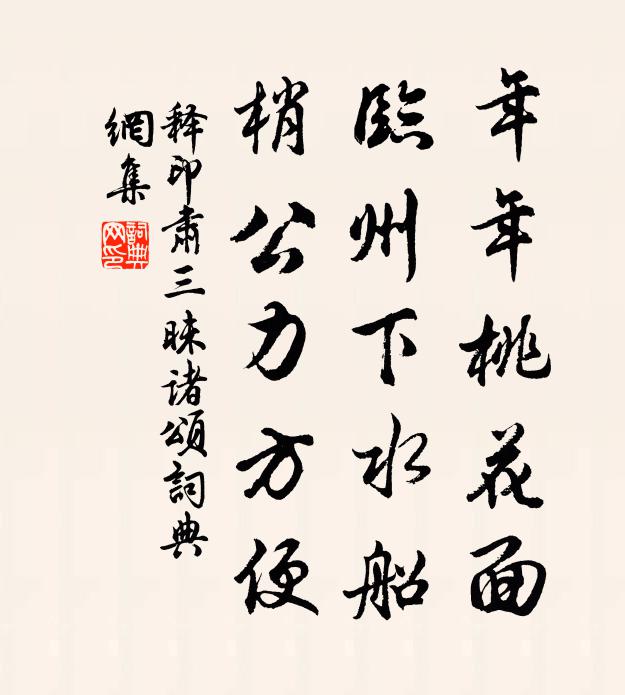 年年桃花面
臨州下水船
梢公力方便
释印肃三昧诸頌詞典
網集
詞典
网印